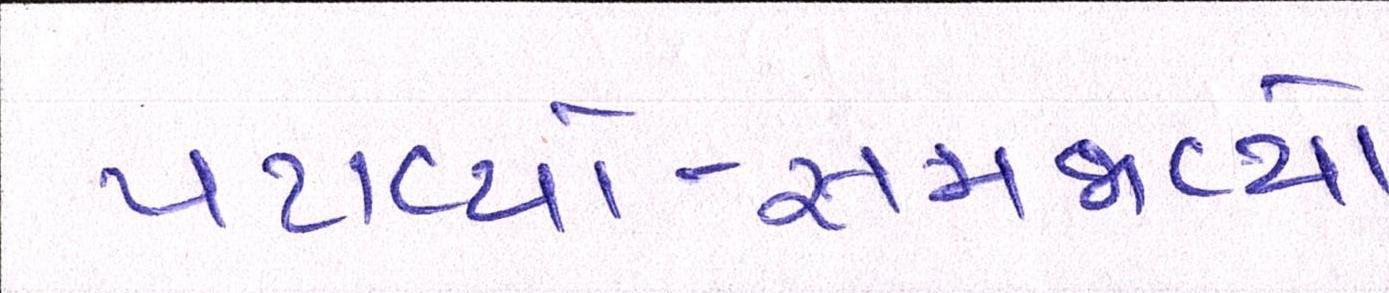 પટાવ્યો-સમજાવ્યો